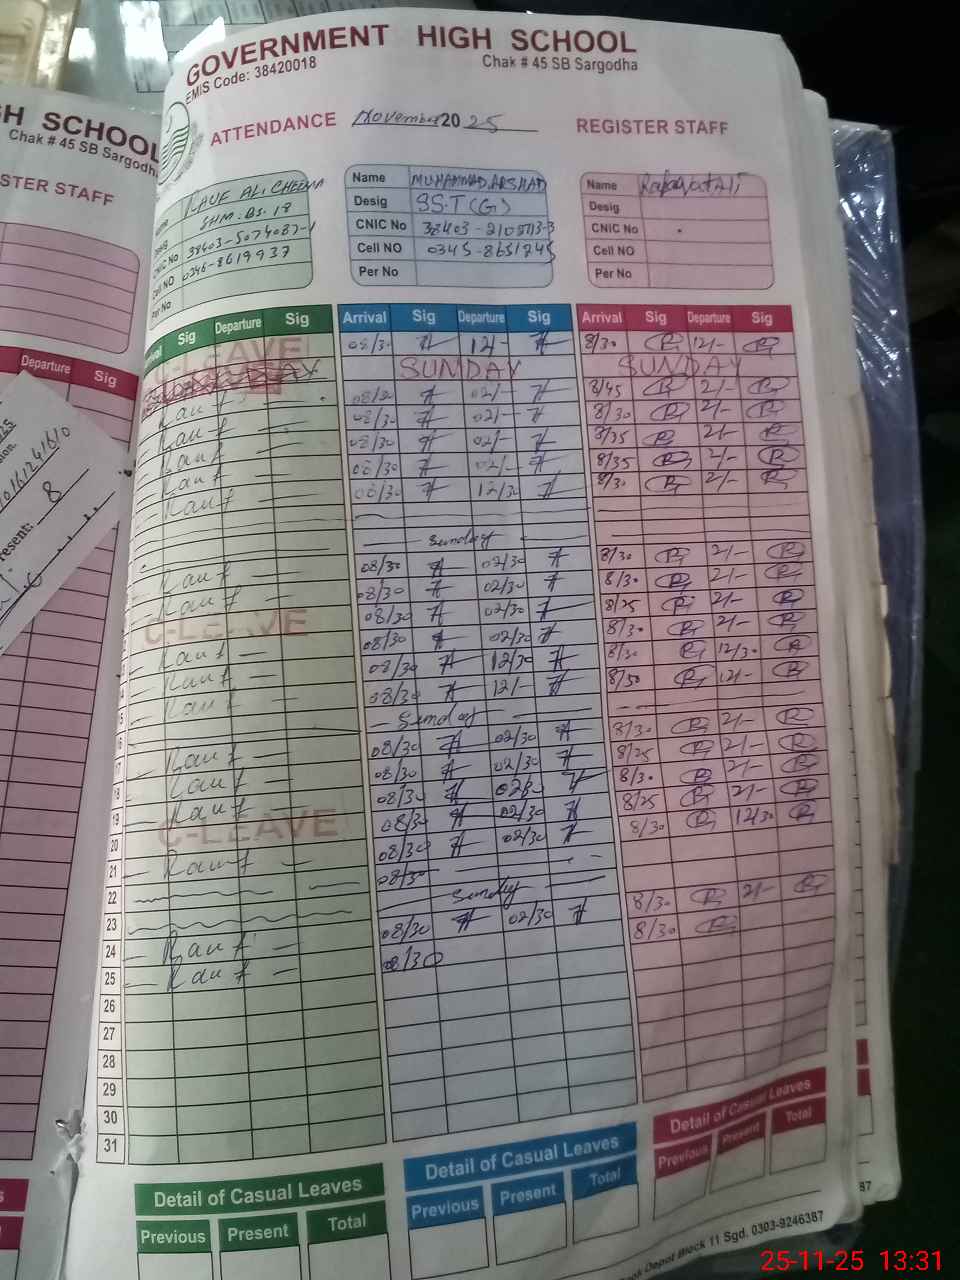 GOVERNMENT HIGH SCHOOL
EMIS Code: 38420018
Chak # 45 SB Sargodha
ATTENDANCE November 2025 REGISTER STAFF
Name RAUF ALI CHEEMA
Desig SHM. BS. 18
CNIC No
Cell NO 0346-8619937
Per No
Name MUHAMMAD ARSHAD
Desig SS.T (G)
CNIC No
Cell NO 0345-8651245
Per No
Name Rafaqat Ali
Desig
CNIC No
Cell NO
Per No
Sig Departure Sig
Arrival Sig Departure Sig
Arrival Sig Departure Sig
C-LEAVE 08/30 12/- 8/30 12/-
SUNDAY SUNDAY
Rauf 02/- 8/45 2/-
Rauf 08/30 02/- 8/30 2/-
Rauf 08/30 02/- 8/35 2/-
Rauf 08/30 02/- 8/35 2/-
Rauf 08/30 12/30 8/30 2/-
Sunday
Rauf 08/30 02/30 8/30 2/-
Rauf 08/30 02/30 8/30 2/-
C-LEAVE 08/30 02/30 8/25 2/-
Rauf 08/30 02/30 8/30 2/-
Rauf 08/30 12/30 8/30 12/30
Rauf 08/30 12/- 8/30 12/-
Sunday
16 Rauf 08/30 02/30 8/30 2/-
17 Rauf 08/30 02/30 8/25 2/-
18 Rauf 08/30 0230 8/30 2/-
19 C-LEAVE 08/30 02/30 8/25 2/-
20 Rauf 08/30 02/30 8/30 12/30
21 08/30
22
23 Sunday
24 Rauf 08/30 02/30 8/30 2/-
25 Rauf 08/30 8/30
26
27
28
29
30
31
Detail of Casual Leaves
Previous Present Total
Detail of Casual Leaves
Previous Present Total
Detail of Casual Leaves
Previous Present Total
Depot Block 11 Sgd. 0303-9246387
SCHOOL
Chak # 45 SB Sargodha
STER STAFF
Departure Sig
resent: 8
87
25-11-25 13:31